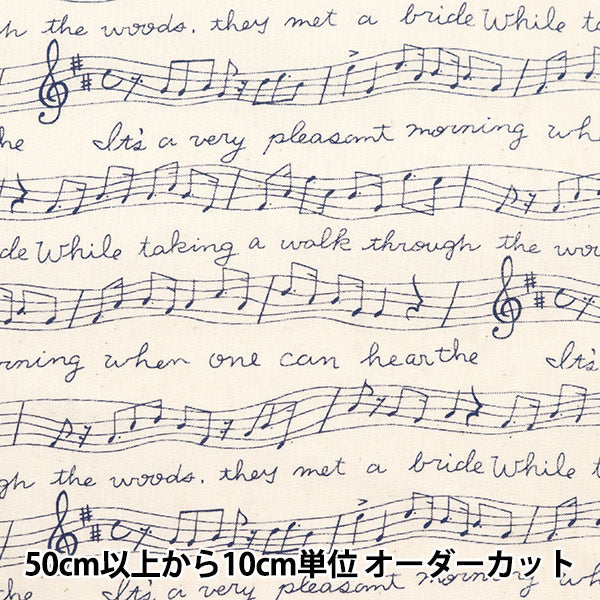 h the woods. they met a bride While ta
the It's a very pleasant morning whe
de While taking a walk through the woo
rning when one can hear the It's
gh the woods. they met a bride While t
the It's a very pleasant morning wh
50cm以上から10cm単位 オーダーカット